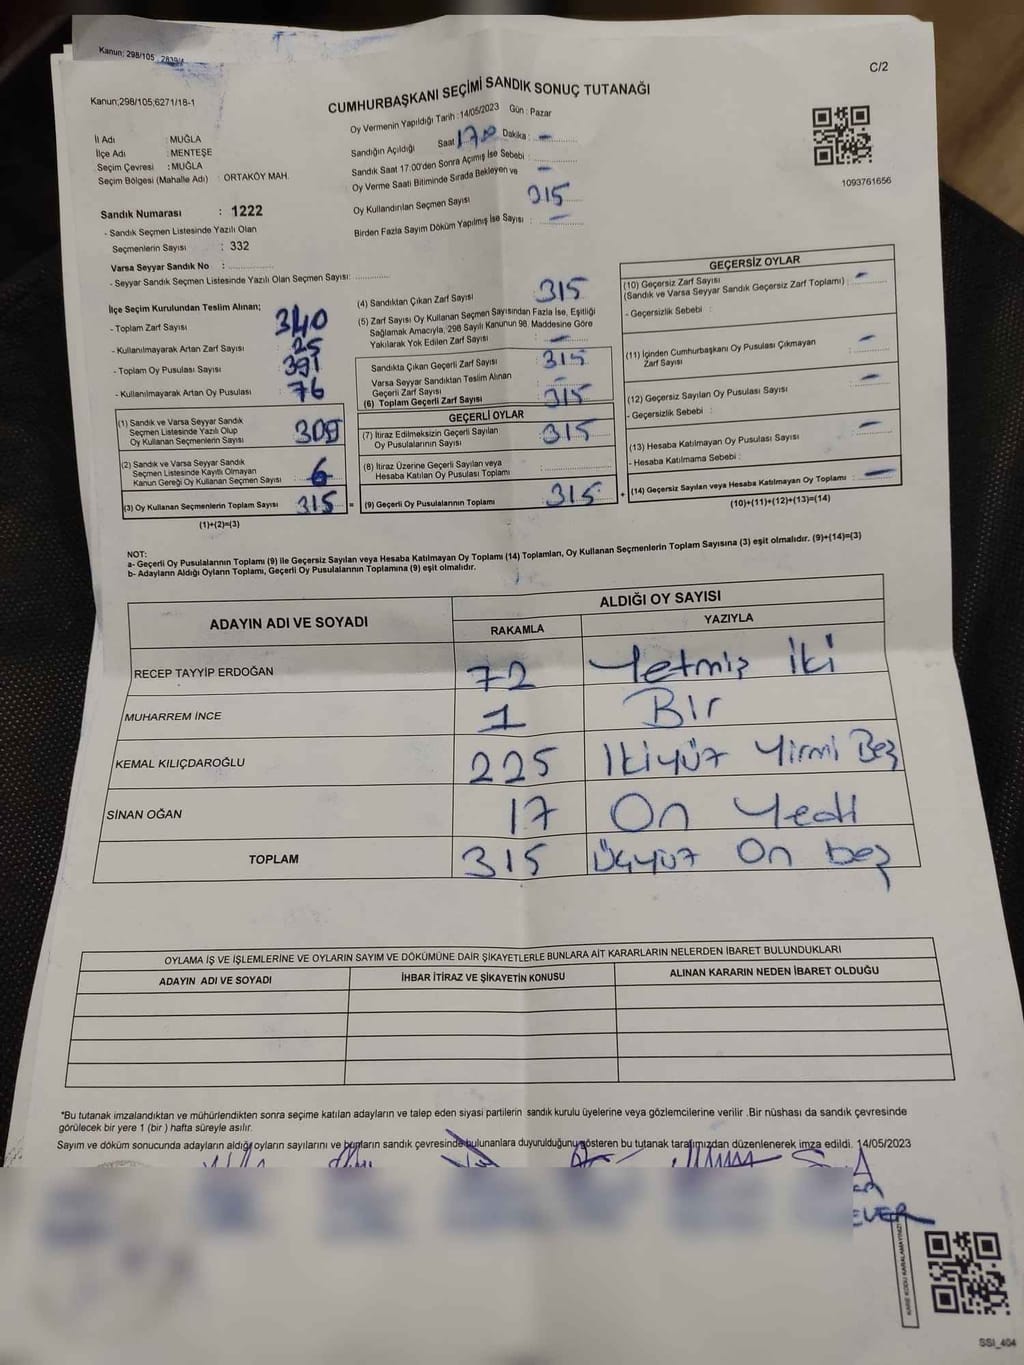 Kanun; 298/105
C/2
Kanun;298/105;6271/18-1
CUMHURBAŞKANI SEÇİMİ SANDIK SONUÇ TUTANAĞI
Oy Vermenin Yapıldığı Tarih :14/05/2023 Gün : Pazar
İl Adı : MUĞLA
İlçe Adı : MENTEŞE
Seçim Çevresi : MUĞLA
Seçim Bölgesi (Mahalle Adı) : ORTAKÖY MAH.
Sandığın Açıldığı Saat Dakika : -
Sandık Saat 17.00'den Sonra Açılmış İse Sebebi :
Oy Verme Saati Bitiminde Sırada Bekleyen ve -
Oy Kullandırılan Seçmen Sayısı 315
Birden Fazla Sayım Döküm Yapılmış İse Sayısı : -
1093761656
Sandık Numarası : 1222
- Sandık Seçmen Listesinde Yazılı Olan
Seçmenlerin Sayısı : 332
Varsa Seyyar Sandık No :
- Seyyar Sandık Seçmen Listesinde Yazılı Olan Seçmen Sayısı:
İlçe Seçim Kurulundan Teslim Alınan;
- Toplam Zarf Sayısı 340
- Kullanılmayarak Artan Zarf Sayısı 25
- Toplam Oy Pusulası Sayısı 391
- Kullanılmayarak Artan Oy Pusulası 76
(1) Sandık ve Varsa Seyyar Sandık
Seçmen Listesinde Yazılı Olup
Oy Kullanan Seçmenlerin Sayısı 309
(2) Sandık ve Varsa Seyyar Sandık
Seçmen Listesinde Kayıtlı Olmayan
Kanun Gereği Oy Kullanan Seçmen Sayısı 6
(3) Oy Kullanan Seçmenlerin Toplam Sayısı 315 =
(1)+(2)=(3)
(4) Sandıktan Çıkan Zarf Sayısı 315
(5) Zarf Sayısı Oy Kullanan Seçmen Sayısından Fazla İse, Eşitliği
Sağlamak Amacıyla, 298 Sayılı Kanunun 98. Maddesine Göre
Yakılarak Yok Edilen Zarf Sayısı : -
Sandıkta Çıkan Geçerli Zarf Sayısı 315
Varsa Seyyar Sandıktan Teslim Alınan
Geçerli Zarf Sayısı -
(6) Toplam Geçerli Zarf Sayısı 315
GEÇERLİ OYLAR
(7) İtiraz Edilmeksizin Geçerli Sayılan
Oy Pusulalarının Sayısı 315
(8) İtiraz Üzerine Geçerli Sayılan veya
Hesaba Katılan Oy Pusulası Toplamı :
(9) Geçerli Oy Pusulalarının Toplamı 315 +
GEÇERSİZ OYLAR
(10) Geçersiz Zarf Sayısı -
(Sandık ve Varsa Seyyar Sandık Geçersiz Zarf Toplamı) :
- Geçersizlik Sebebi :
(11) İçinden Cumhurbaşkanı Oy Pusulası Çıkmayan -
Zarf Sayısı :
(12) Geçersiz Sayılan Oy Pusulası Sayısı -
- Geçersizlik Sebebi :
(13) Hesaba Katılmayan Oy Pusulası Sayısı -
- Hesaba Katılmama Sebebi :
(14) Geçersiz Sayılan veya Hesaba Katılmayan Oy Toplamı : -
(10)+(11)+(12)+(13)=(14)
NOT:
a- Geçerli Oy Pusulalarının Toplamı (9) ile Geçersiz Sayılan veya Hesaba Katılmayan Oy Toplamı (14) Toplamları, Oy Kullanan Seçmenlerin Toplam Sayısına (3) eşit olmalıdır. (9)+(14)=(3)
b- Adayların Aldığı Oyların Toplamı, Geçerli Oy Pusulalarının Toplamına (9) eşit olmalıdır.
ADAYIN ADI VE SOYADI ALDIĞI OY SAYISI
RAKAMLA YAZIYLA
RECEP TAYYİP ERDOĞAN 72 Yetmiş İki
MUHARREM İNCE 1 Bir
KEMAL KILIÇDAROĞLU 225 İkiyüz Yirmi Beş
SİNAN OĞAN 17 On Yedi
TOPLAM 315 Üçyüz On beş
OYLAMA İŞ VE İŞLEMLERİNE VE OYLARIN SAYIM VE DÖKÜMÜNE DAİR ŞİKAYETLERLE BUNLARA AİT KARARLARIN NELERDEN İBARET BULUNDUKLARI
ADAYIN ADI VE SOYADI İHBAR İTİRAZ VE ŞİKAYETİN KONUSU ALINAN KARARIN NEDEN İBARET OLDUĞU
*Bu tutanak imzalandıktan ve mühürlendikten sonra seçime katılan adayların ve talep eden siyasi partilerin sandık kurulu üyelerine veya gözlemcilerine verilir .Bir nüshası da sandık çevresinde
görülecek bir yere 1 (bir ) hafta süreyle asılır.
Sayım ve döküm sonucunda adayların aldığı oyların sayılarını ve bunların sandık çevresinde bulunanlara duyurulduğunu gösteren bu tutanak tarafımızdan düzenlenerek imza edildi. 14/05/2023
KARE KODU KARALAMAYINIZ!
SSI_404